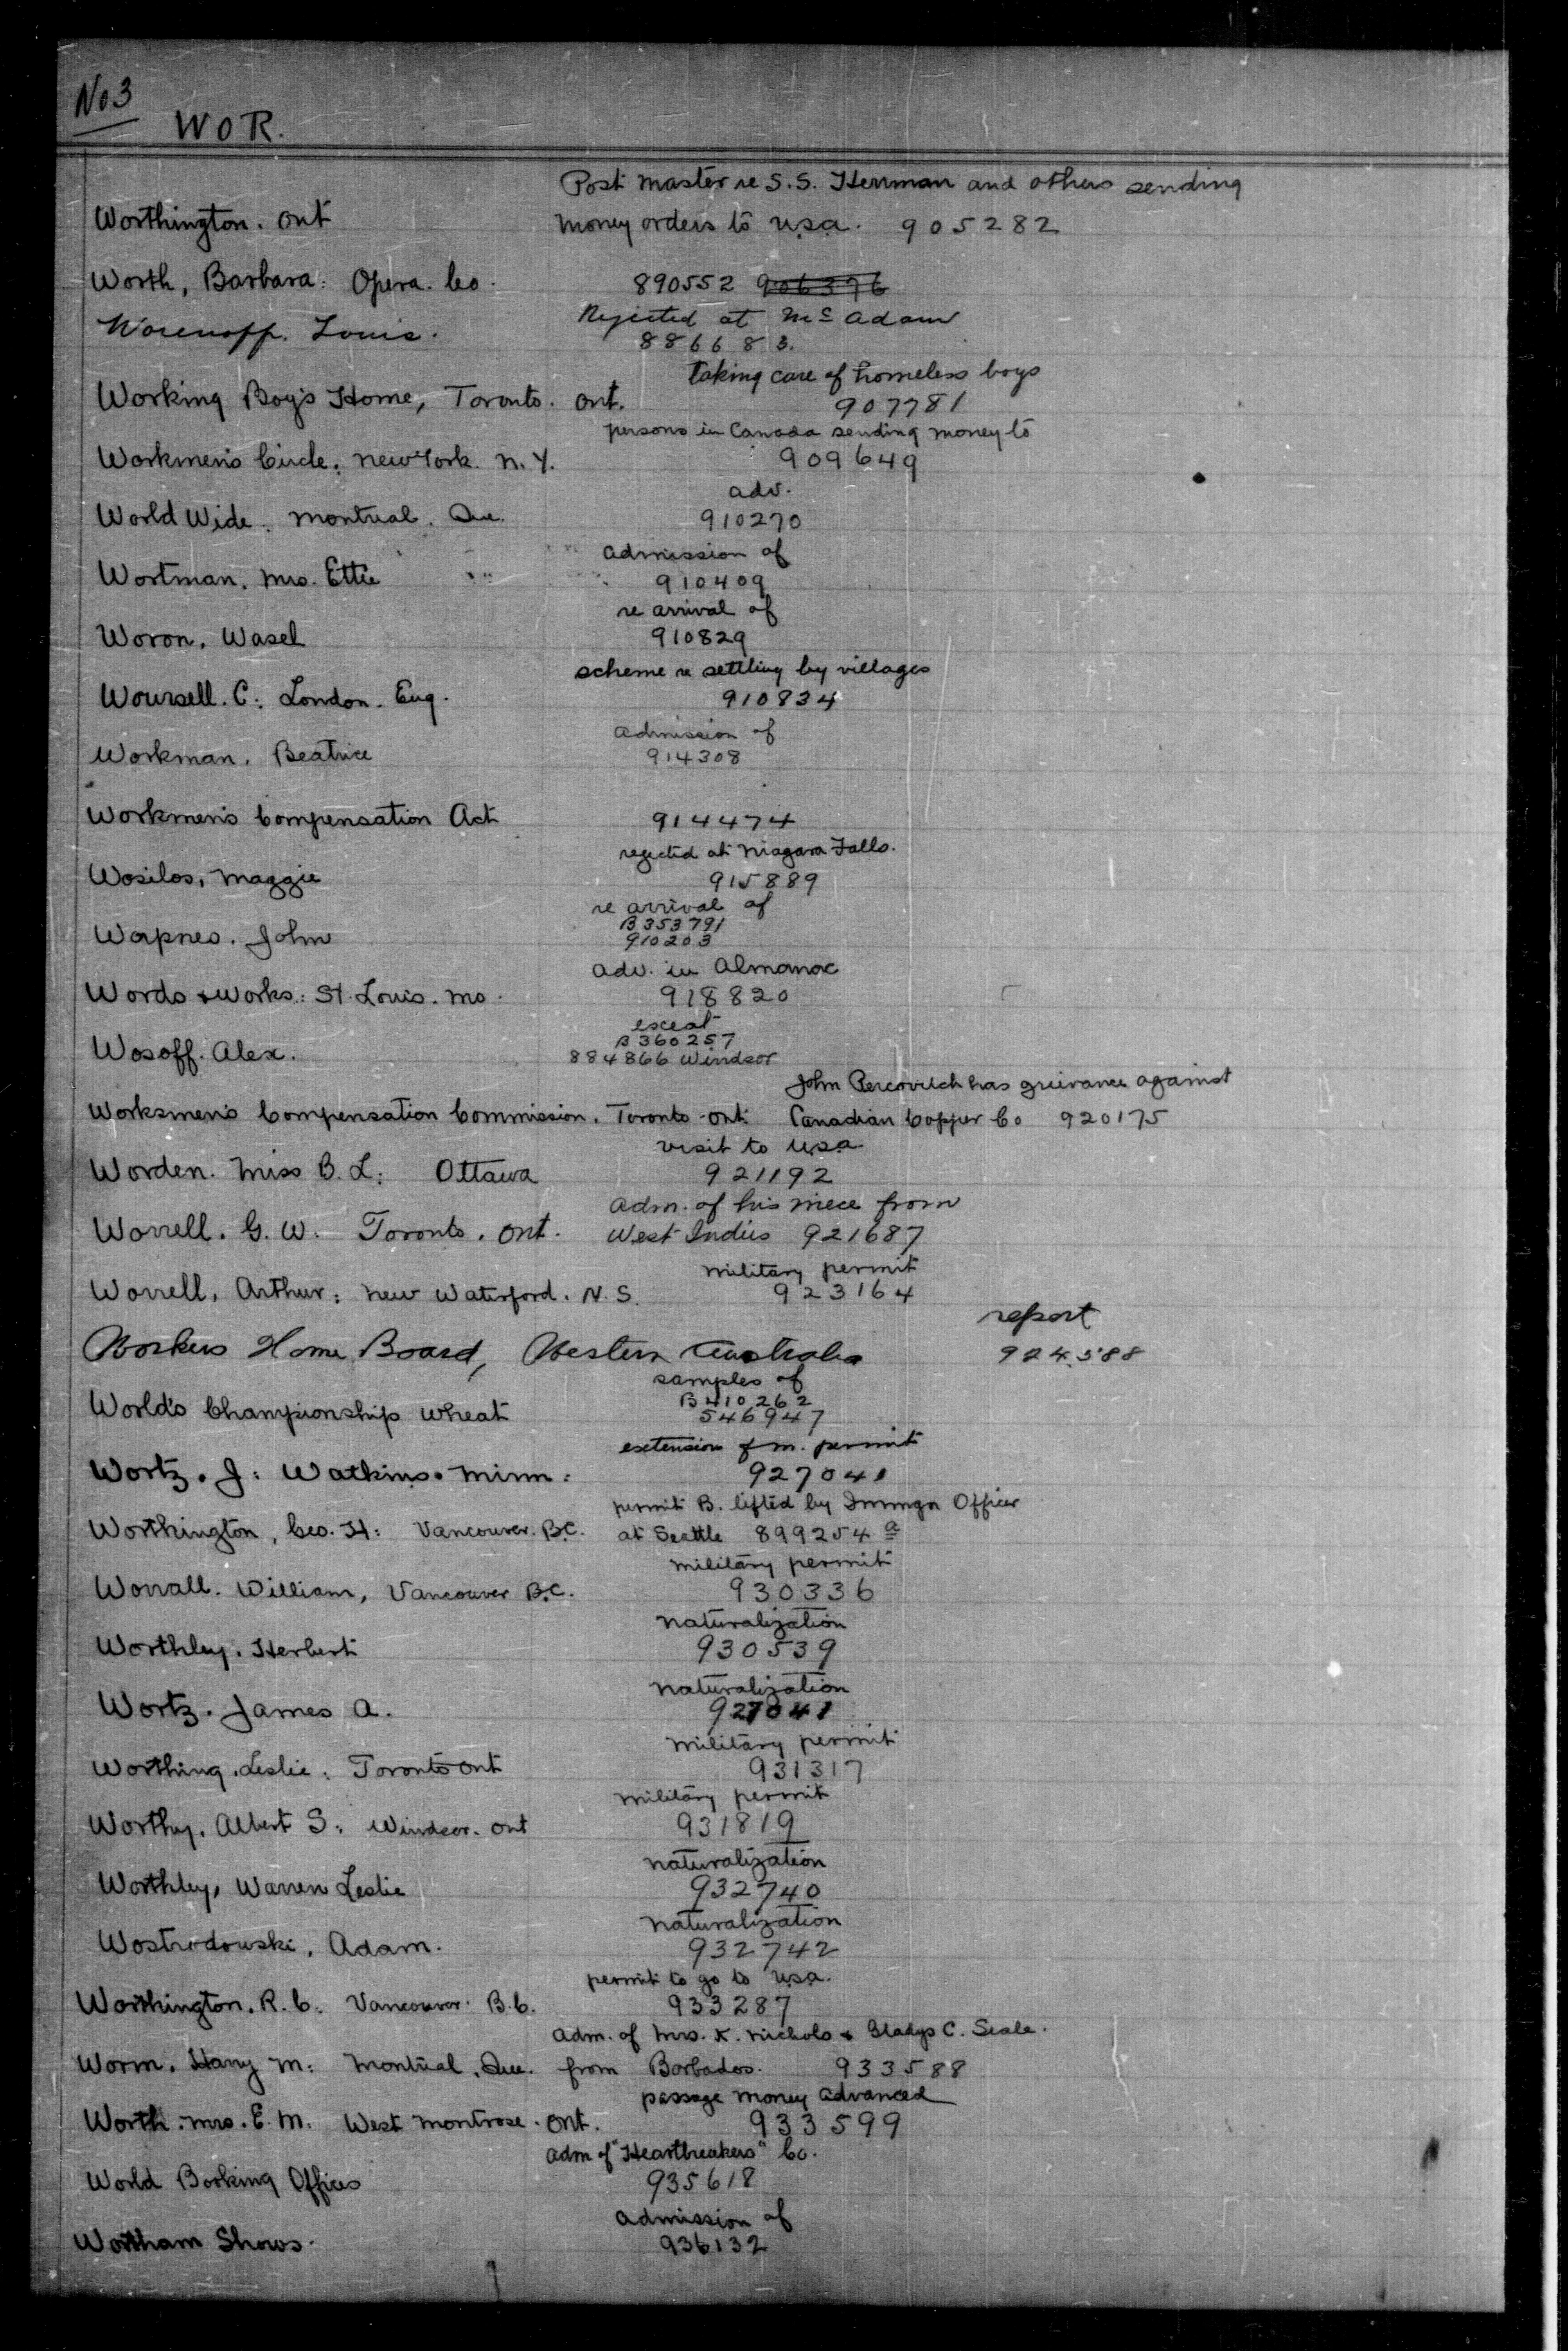 No 3
WOR.
Post Master re S.S. Herrman and others sending
Worthington. Ont money orders to U.S.A. 905282
Worth, Barbara: Opera. Co. 890552 906376
Rejected at McAdam
Worenoff. Louis. 886683.
taking care of homeless boys
Working Boy's Home, Toronto. Ont. 907781
persons in Canada sending money to
Workmen's Circle: New York. N.Y. 909649
adv.
World Wide. Montreal. Que. 910270
admission of
Wortman. Mrs. Ettie 910409
re arrival of
Woron, Wasel 910829
scheme re settling by villages
Woursell. C: London. Eng. 910834
admission of
Workman. Beatrice 914308
Workmen's Compensation Act 914474
rejected at Niagara Falls.
Wosilos, Maggie 915889
re arrival of
B353791
Worpnes. John 910203
adv. in Almanac
Words & Works: St. Louis. Mo. 918820
exeat
B360257
Wosoff. Alex. 884866 Windsor
John Percovitch has grievance against
Worksmen's Compensation Commission. Toronto Ont. Canadian Copper Co 920175
visit to U.S.A.
Worden. Miss B. L: Ottawa 921192
Adm. of his niece from
Worrell. G. W. Toronto. Ont. West Indies 921687
Military permit
Worrell, Arthur: New Waterford. N.S. 923164
report
Workers Home Board, Western Australia 924588
samples of
B410262
World's Championship Wheat 546947
extension of m. permit
Wortz. J: Watkins. Minn: 927041
permit B. lifted by Immgn Officer
Worthington, Geo. H: Vancouver. B.C. at Seattle 899254 a
Military permit
Worrall. William, Vancouver B.C. 930336
Naturalization
Worthley. Herbert 930539
Naturalization
Wortz. James A. 927041
Military permit
Worthing. Leslie: Toronto Ont 931317
Military permit
Worthy. Albert S: Windsor. Ont 931819
Naturalization
Worthley, Warren Leslie 932740
Naturalization
Wostrodowski, Adam. 932742
permit to go to U.S.A.
Worthington. R. C: Vancouver. B.C. 933287
Adm. of Mrs. K. Nichols & Gladys C. Seale.
Worm. Harry M: Montreal. Que. from Barbados. 933588
passage money advanced
Worth. Mrs. E. M: West Montrose. Ont. 933599
Adm of "Heartbreakers" Co.
World Booking Offices 935618
Admission of
Wortham Shows. 936132